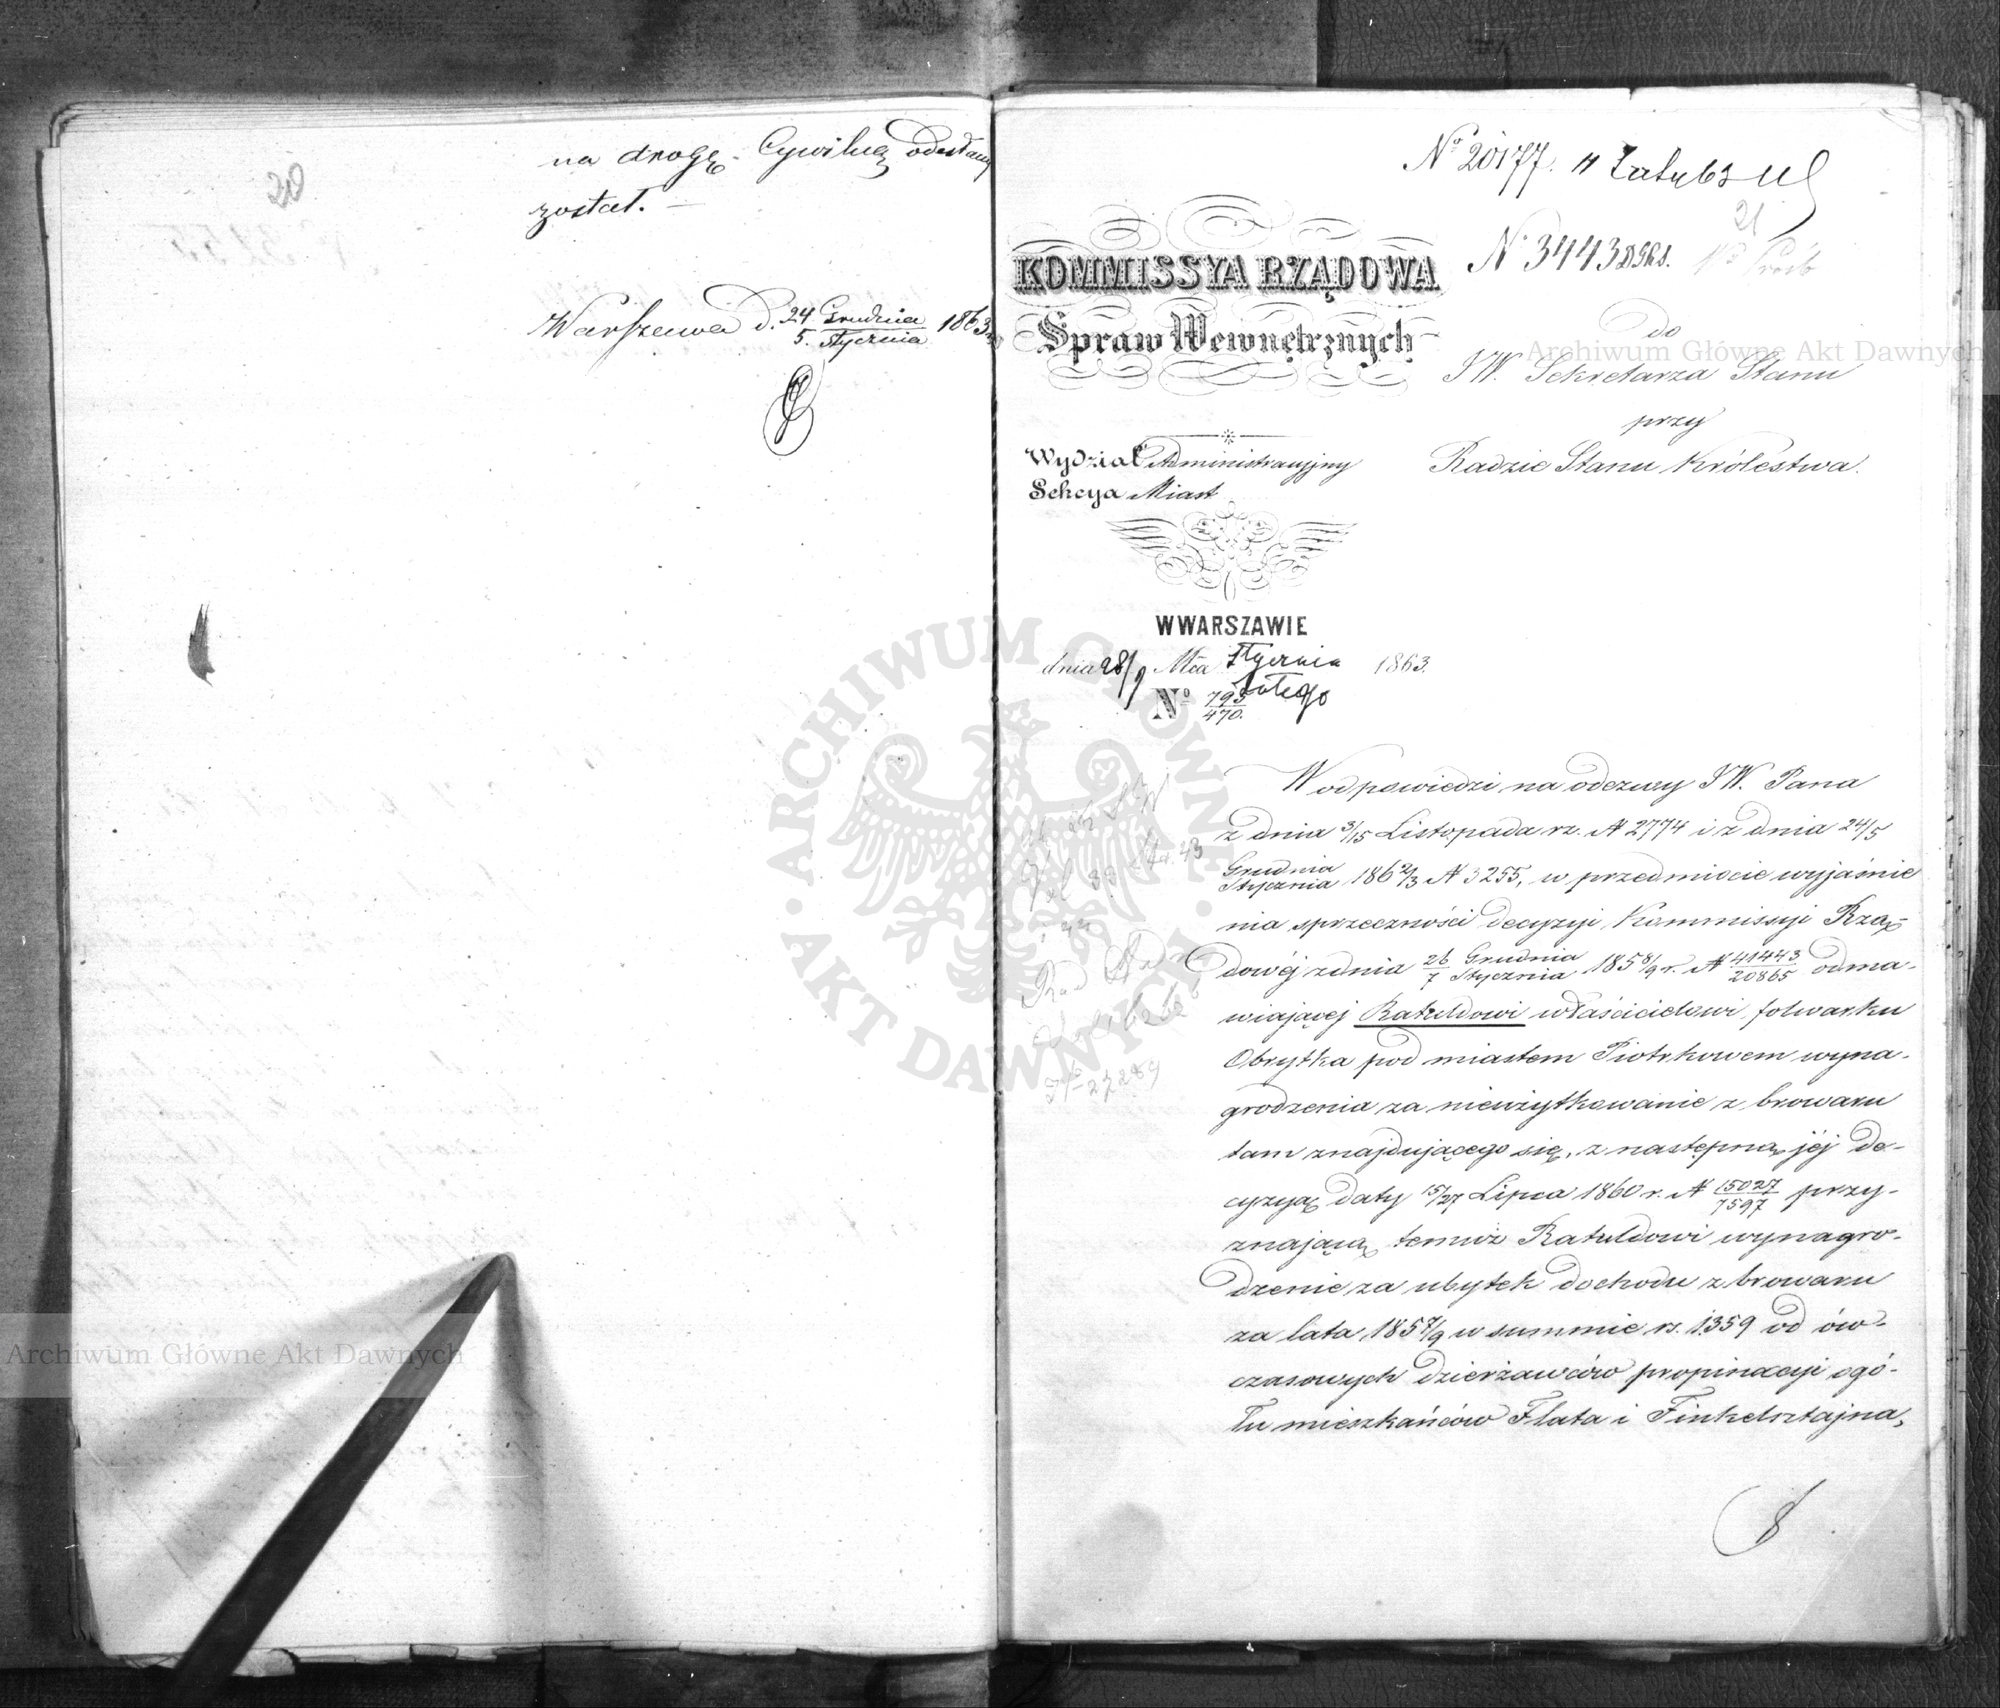 20
na drogę Cywilną odesłany
został. —
Warszawa d. 24 Grudnia / 5 Stycznia 1863
No 20177.
No 3443 D.Gł.S.
21
KOMMISSYA RZĄDOWA
Spraw Wewnętrznych
do
JW. Sekretarza Stanu
przy
Radzie Stanu Królestwa.
Wydział Administracyjny
Sekcya Miast
W WARSZAWIE
dnia 28/9 Mca Stycznia 1863.
Lutego
No 795/470.
W odpowiedzi na odezwy JW. Pana
z dnia 3/15 Listopada rz. N 2774 i z dnia 24/5
Grudnia/Stycznia 1862/3 N 3255, w przedmiocie wyjaśnie
nia sprzeczności decyzyi Kommissyi Rzą-
dowéj z dnia 26 Grudnia / 7 Stycznia 1858/9 r. N 41443/20865 odma-
wiającéj Ratuldowi właścicielowi folwarku
Obrytka pod miastem Piotrkowem wyna-
grodzenia za nieużytkowanie z browaru
tam znajdującego się, z następną jéj de-
cyzyą daty 15/27 Lipca 1860 r. N 15027/7597 przy-
znającą temuż Ratuldowi wynagro-
dzenie za ubytek dochodu z browaru
za lata 1857/9 w summie rs. 1359 od ów-
czasowych dzierżawców propinacyi ogó-
łu mieszkańców Flata i Finkelsztajna,
Archiwum Główne Akt Dawnych
Archiwum Główne Akt Dawnych
ARCHIWUM GŁÓWNE AKT DAWNYCH